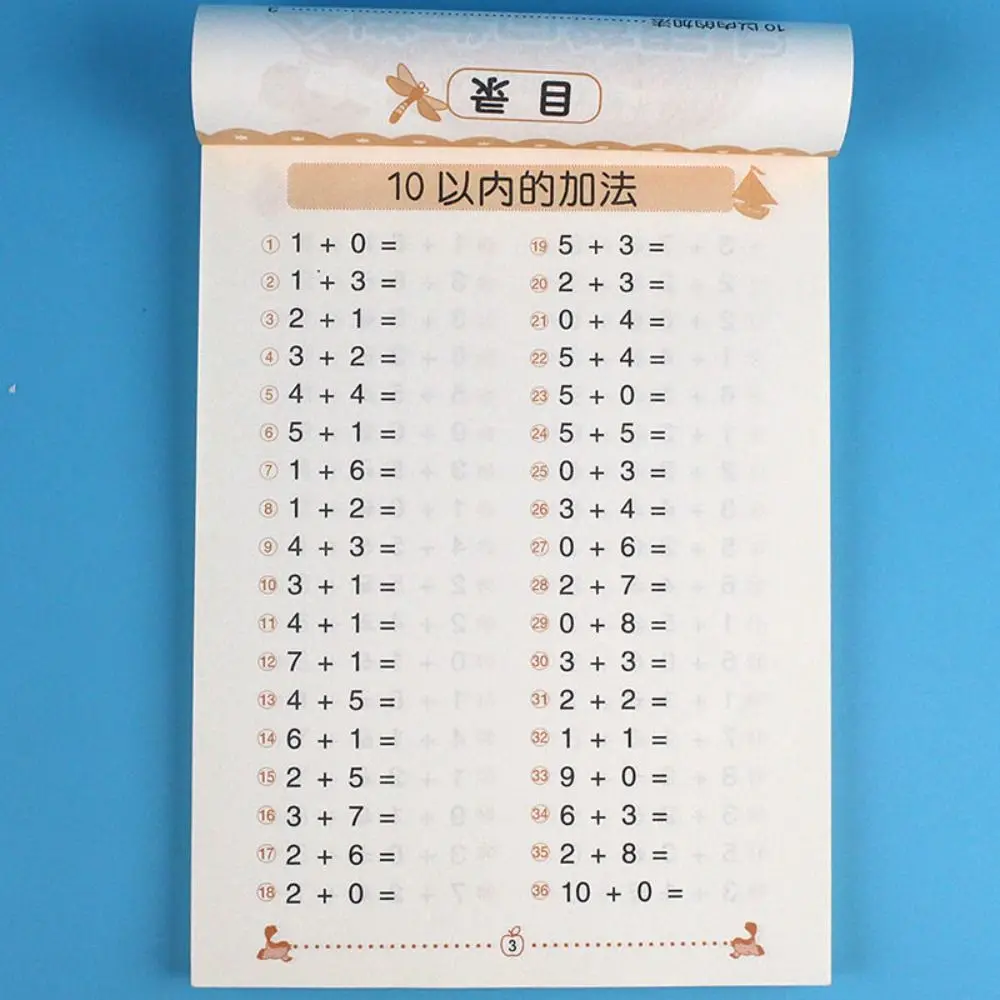 10 以内的加法
目录
10 以内的加法
① 1 + 0 =
② 1 + 3 =
③ 2 + 1 =
④ 3 + 2 =
⑤ 4 + 4 =
⑥ 5 + 1 =
⑦ 1 + 6 =
⑧ 1 + 2 =
⑨ 4 + 3 =
⑩ 3 + 1 =
⑪ 4 + 1 =
⑫ 7 + 1 =
⑬ 4 + 5 =
⑭ 6 + 1 =
⑮ 2 + 5 =
⑯ 3 + 7 =
⑰ 2 + 6 =
⑱ 2 + 0 =
⑲ 5 + 3 =
⑳ 2 + 3 =
㉑ 0 + 4 =
㉒ 5 + 4 =
㉓ 5 + 0 =
㉔ 5 + 5 =
㉕ 0 + 3 =
㉖ 3 + 4 =
㉗ 0 + 6 =
㉘ 2 + 7 =
㉙ 0 + 8 =
㉚ 3 + 3 =
㉛ 2 + 2 =
㉜ 1 + 1 =
㉝ 9 + 0 =
㉞ 6 + 3 =
㉟ 2 + 8 =
㊱ 10 + 0 =
3